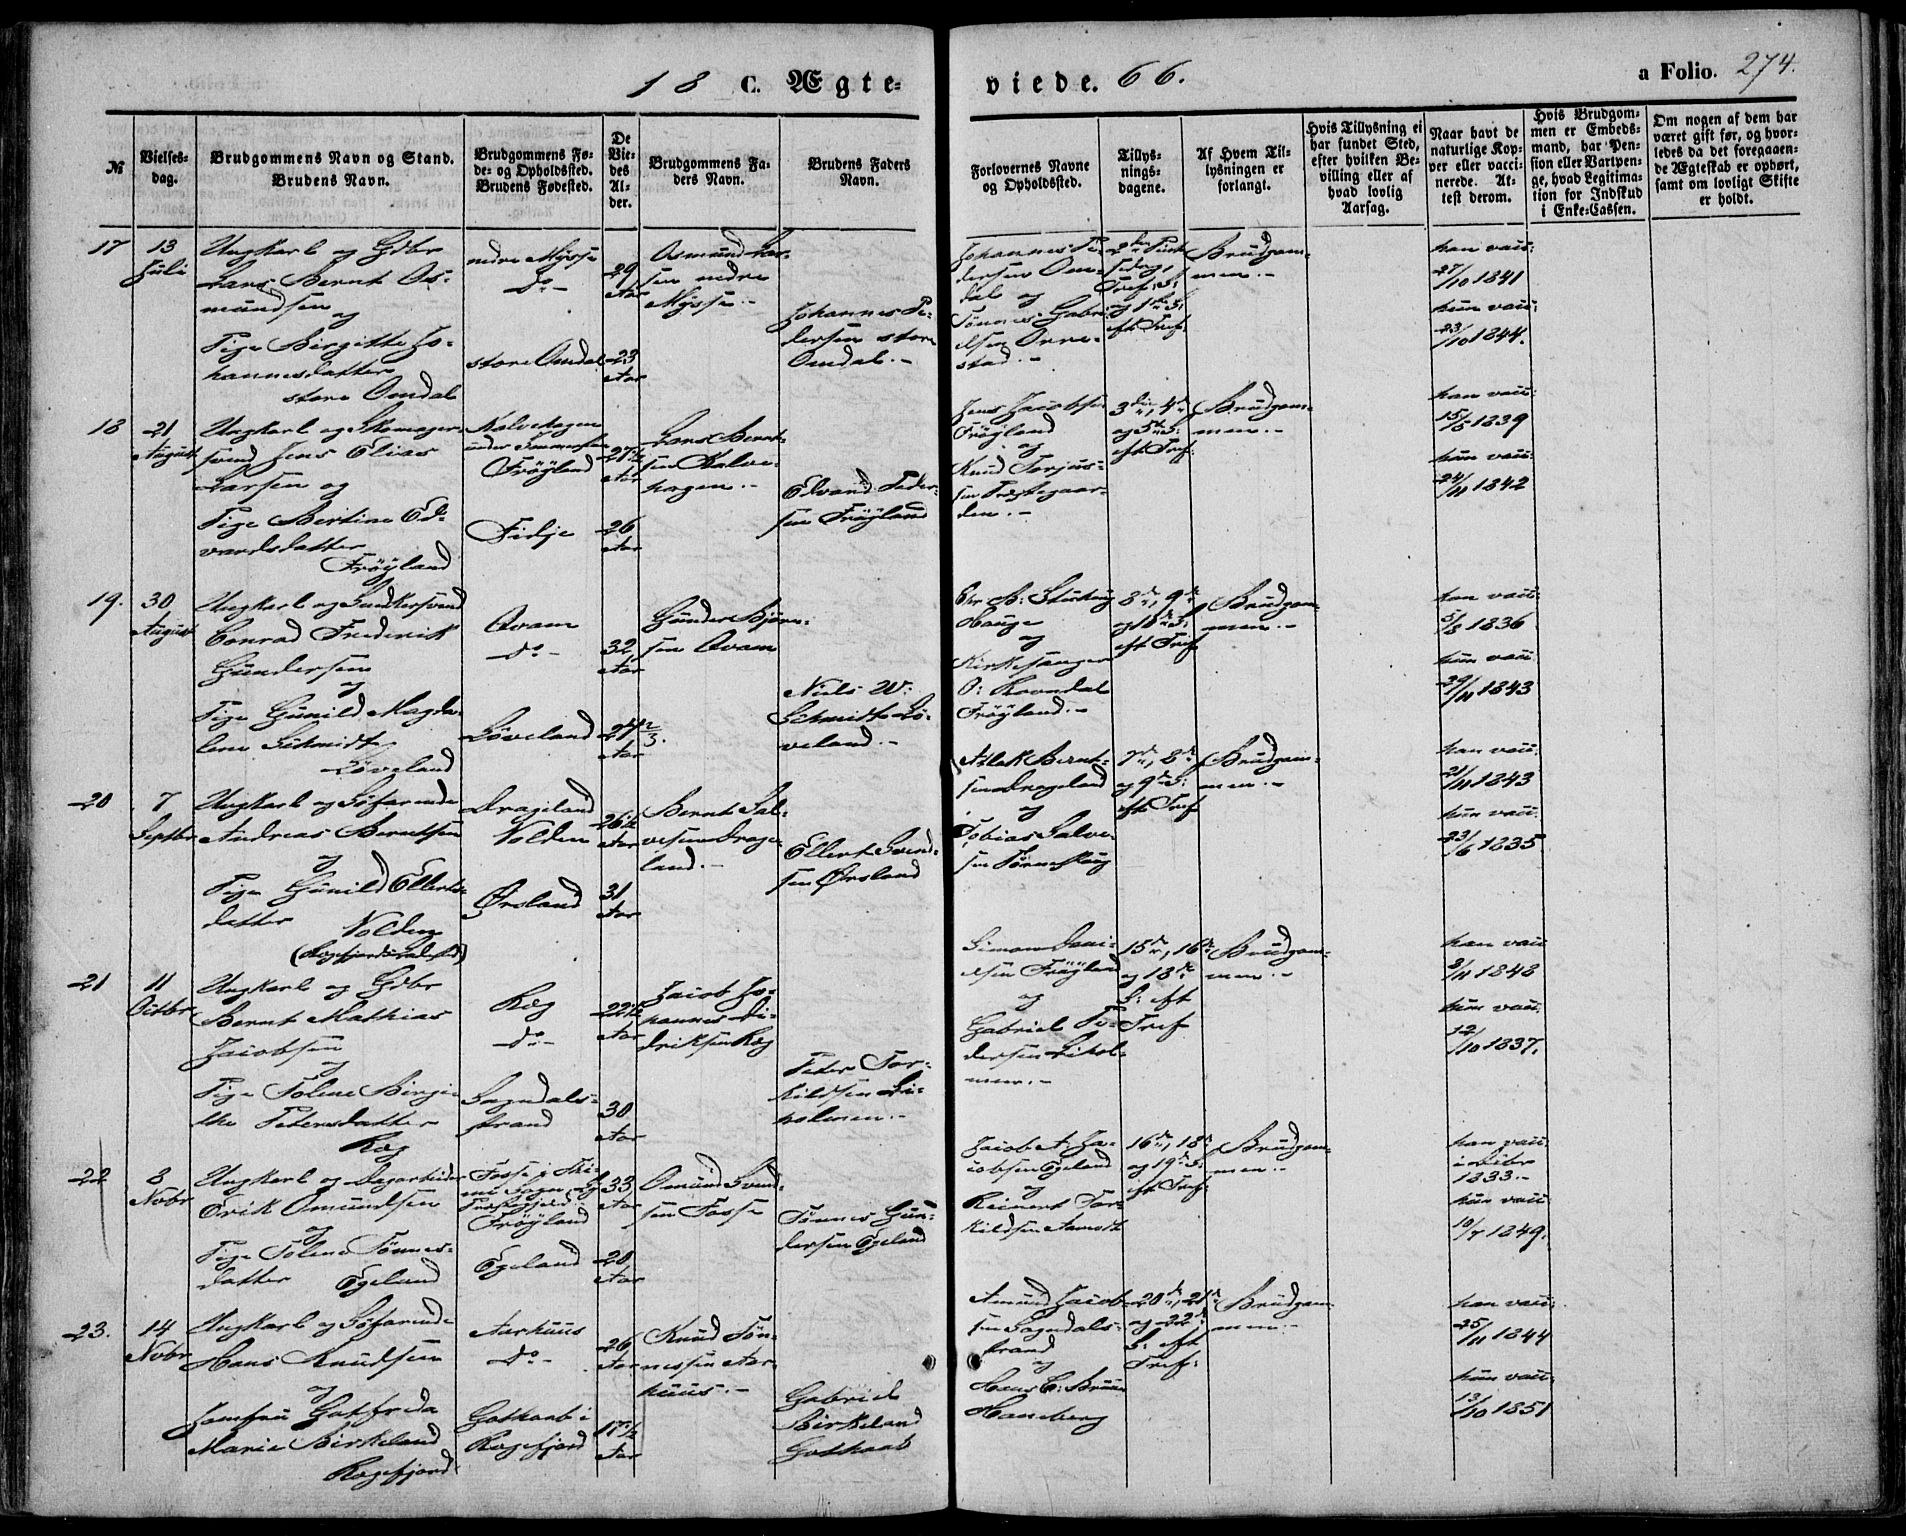 18 C. Ægte=
viede. 66.
a Folio. 274.
№
Vielses-
dag.
Brudgommens Navn og Stand.
Brudens Navn.
Brudgommens Fø-
de- og Opholdssted.
Brudens Fødested.
De
Vie-
des
Al-
der.
Brudgommens Fa-
ders Navn.
Brudens Faders
Navn.
Forlovernes Navne
og Opholdssted.
Tillys-
nings-
dagene.
Af Hvem Til-
lysningen er
forlangt.
Hvis Tillysning ei
har fundet Sted,
efter hvilken Be-
villing eller af
hvad lovlig
Aarsag.
Naar havt de
naturlige Kop-
per eller vacci-
nerede. At-
test derom.
Hvis Brudgom-
men er Embeds-
mand, har Pen-
sion eller Vartpen-
ge, hvad Legitima-
tion for Indskud
i Enke-Cassen.
Om nogen af dem har
været gift før, og hvor-
ledes da det foregaaen-
de Ægteskab er ophørt,
samt om lovligt Skifte
er holdt.
17
13
Juli
Ungkarl og Gdbr
Lars Bernt Os-
mundsen
og
Pige Birgitte Jo-
hannesdatter
store Omdal
nedre Mysse
Do -
store Omdal
29
Aar
23
Aar
Osmund Lar-
sen nedre
Mysse -
Johannes Pe-
dersen store
Omdal. -
Johannes Pe-
dersen Om-
dal og
Tønnes Gabri-
elsen Orre-
stad. -
Brudgom-
men. -
han vacc:
27/10 1841
hun vacc:
23/10 1844.
18
21
August
Ungkarl og Skomager-
svend Jens Elias
Larsen og
Pige Bertine Ed-
vardsdatter
Frøyland
Kalvehagen
Frøyland
Fidje
27½
Aar
26
Aar
Lars Bernt-
sen Kalve-
hagen. -
Edvard Peder-
sen Frøyland
Jens Jacobsen
Frøyland
og
Knud Torjus-
sen Præstegaar-
den. -
3die, 4de
og 5te S:
eft Tref:
Brudgom-
men. -
han vacc:
15/5 1839
hun vacc:
24/11 1842
19.
30
August
Ungkarl og Snedkersvend
Conrad Frederik
Gundersen
og
Pige Gunild Magda-
lene Schmidt
Løveland
Qvam
do -
Løveland
32
Aar
24 2/3.
Aar
Gunder Bjørn-
sen Qvam
Niels W:
Schmidt Lø-
veland. -
Hauge
og
Kirkesanger
O: Ravndal
Frøyland. -
8de, 9de
og 10de S:
eft Tref
Brudgom-
men. -
han vacc:
5/8 1836
hun vacc:
29/11 1843
20
7
Septbr
Ungkarl og Søfarende
Andreas Berntsen
og
Pige Gunild Ellerts-
datter
Nolden
(Rægefjords Ladested)
Drageland
Nolden
Ørsland
26½
Aar
31
Aar
Bernt Sal-
vesen Drage-
land. -
Ellert Svend-
sen Ørsland
Atlak Bernt-
sen Drageland
og
Tobias Salve-
sen Tørneskoug
7de, 8de
og 9de S:
eft Tref
Brudgom-
men. -
han vacc:
21/11 1843
hun vacc:
23/6 1835
21
11
Octbr
Ungkarl og Gdbr
Bernt Mathias
Jacobsen
og
Pige Tolene Birgi-
the Petersdatter
Ræg
Ræg
do -
Sogndals-
strand
22½
Aar
30
Aar
Jacob Jo-
hannes Di-
driksen Ræg
Peter Tor-
kildsen Li-
holmen. -
Simon Dani-
elsen Frøyland
og
Gabriel Pe-
dersen Lihol-
men. -
15de, 16de
og 18de
S: eft
Tref
Brudgom-
men. -
han vacc
8/11 1848
hun vacc:
12/10 1837.
22
8
Novbr
Ungkarl og Dagarbeider
Erik Omundsen
og
Pige Tolene Tønnes-
datter Egeland
Fosse i Ti-
me Sogn, Ly
Præstegjeld.
Frøyland
Egeland
33
Aar
20
Aar
Omund Svend-
sen Fosse
Tønnes Gun-
dersen Egeland
Jacob A: Ja-
cobsen Egeland
og
Reinert Tor-
kildsen Aamodt
16de, 18de
og 19de S:
eft Tref:
Brudgom-
men. -
han vacc
i Octbr
1833. -
hun vacc:
10/7 1849.
23.
14
Novbr
Ungkarl og Søfarende
Hans Knudsen
og
Jomfru Gotfreda
Marie Birkeland
Rægefjord
Aarhuus
do -
Gothaab i
Rægefjord
26
Aar
17½
Aar
Knud Tøn-
nessen Aar-
huus. -
Gabriel
Birkeland
Gothaab
Amund Jacob-
sen Sogndals-
strand
og
Hans C: Bruun
Haneberg
20de, 21de
og 22de
S: eft
Tref:
Brudgom-
men. -
han vacc:
25/11 1844
hun vacc:
13/10 1851